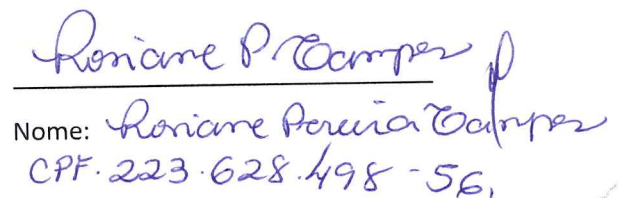 Rosiane P Campos
Nome: Rosiane Pereira Campos
CPF. 223.628.498-56,